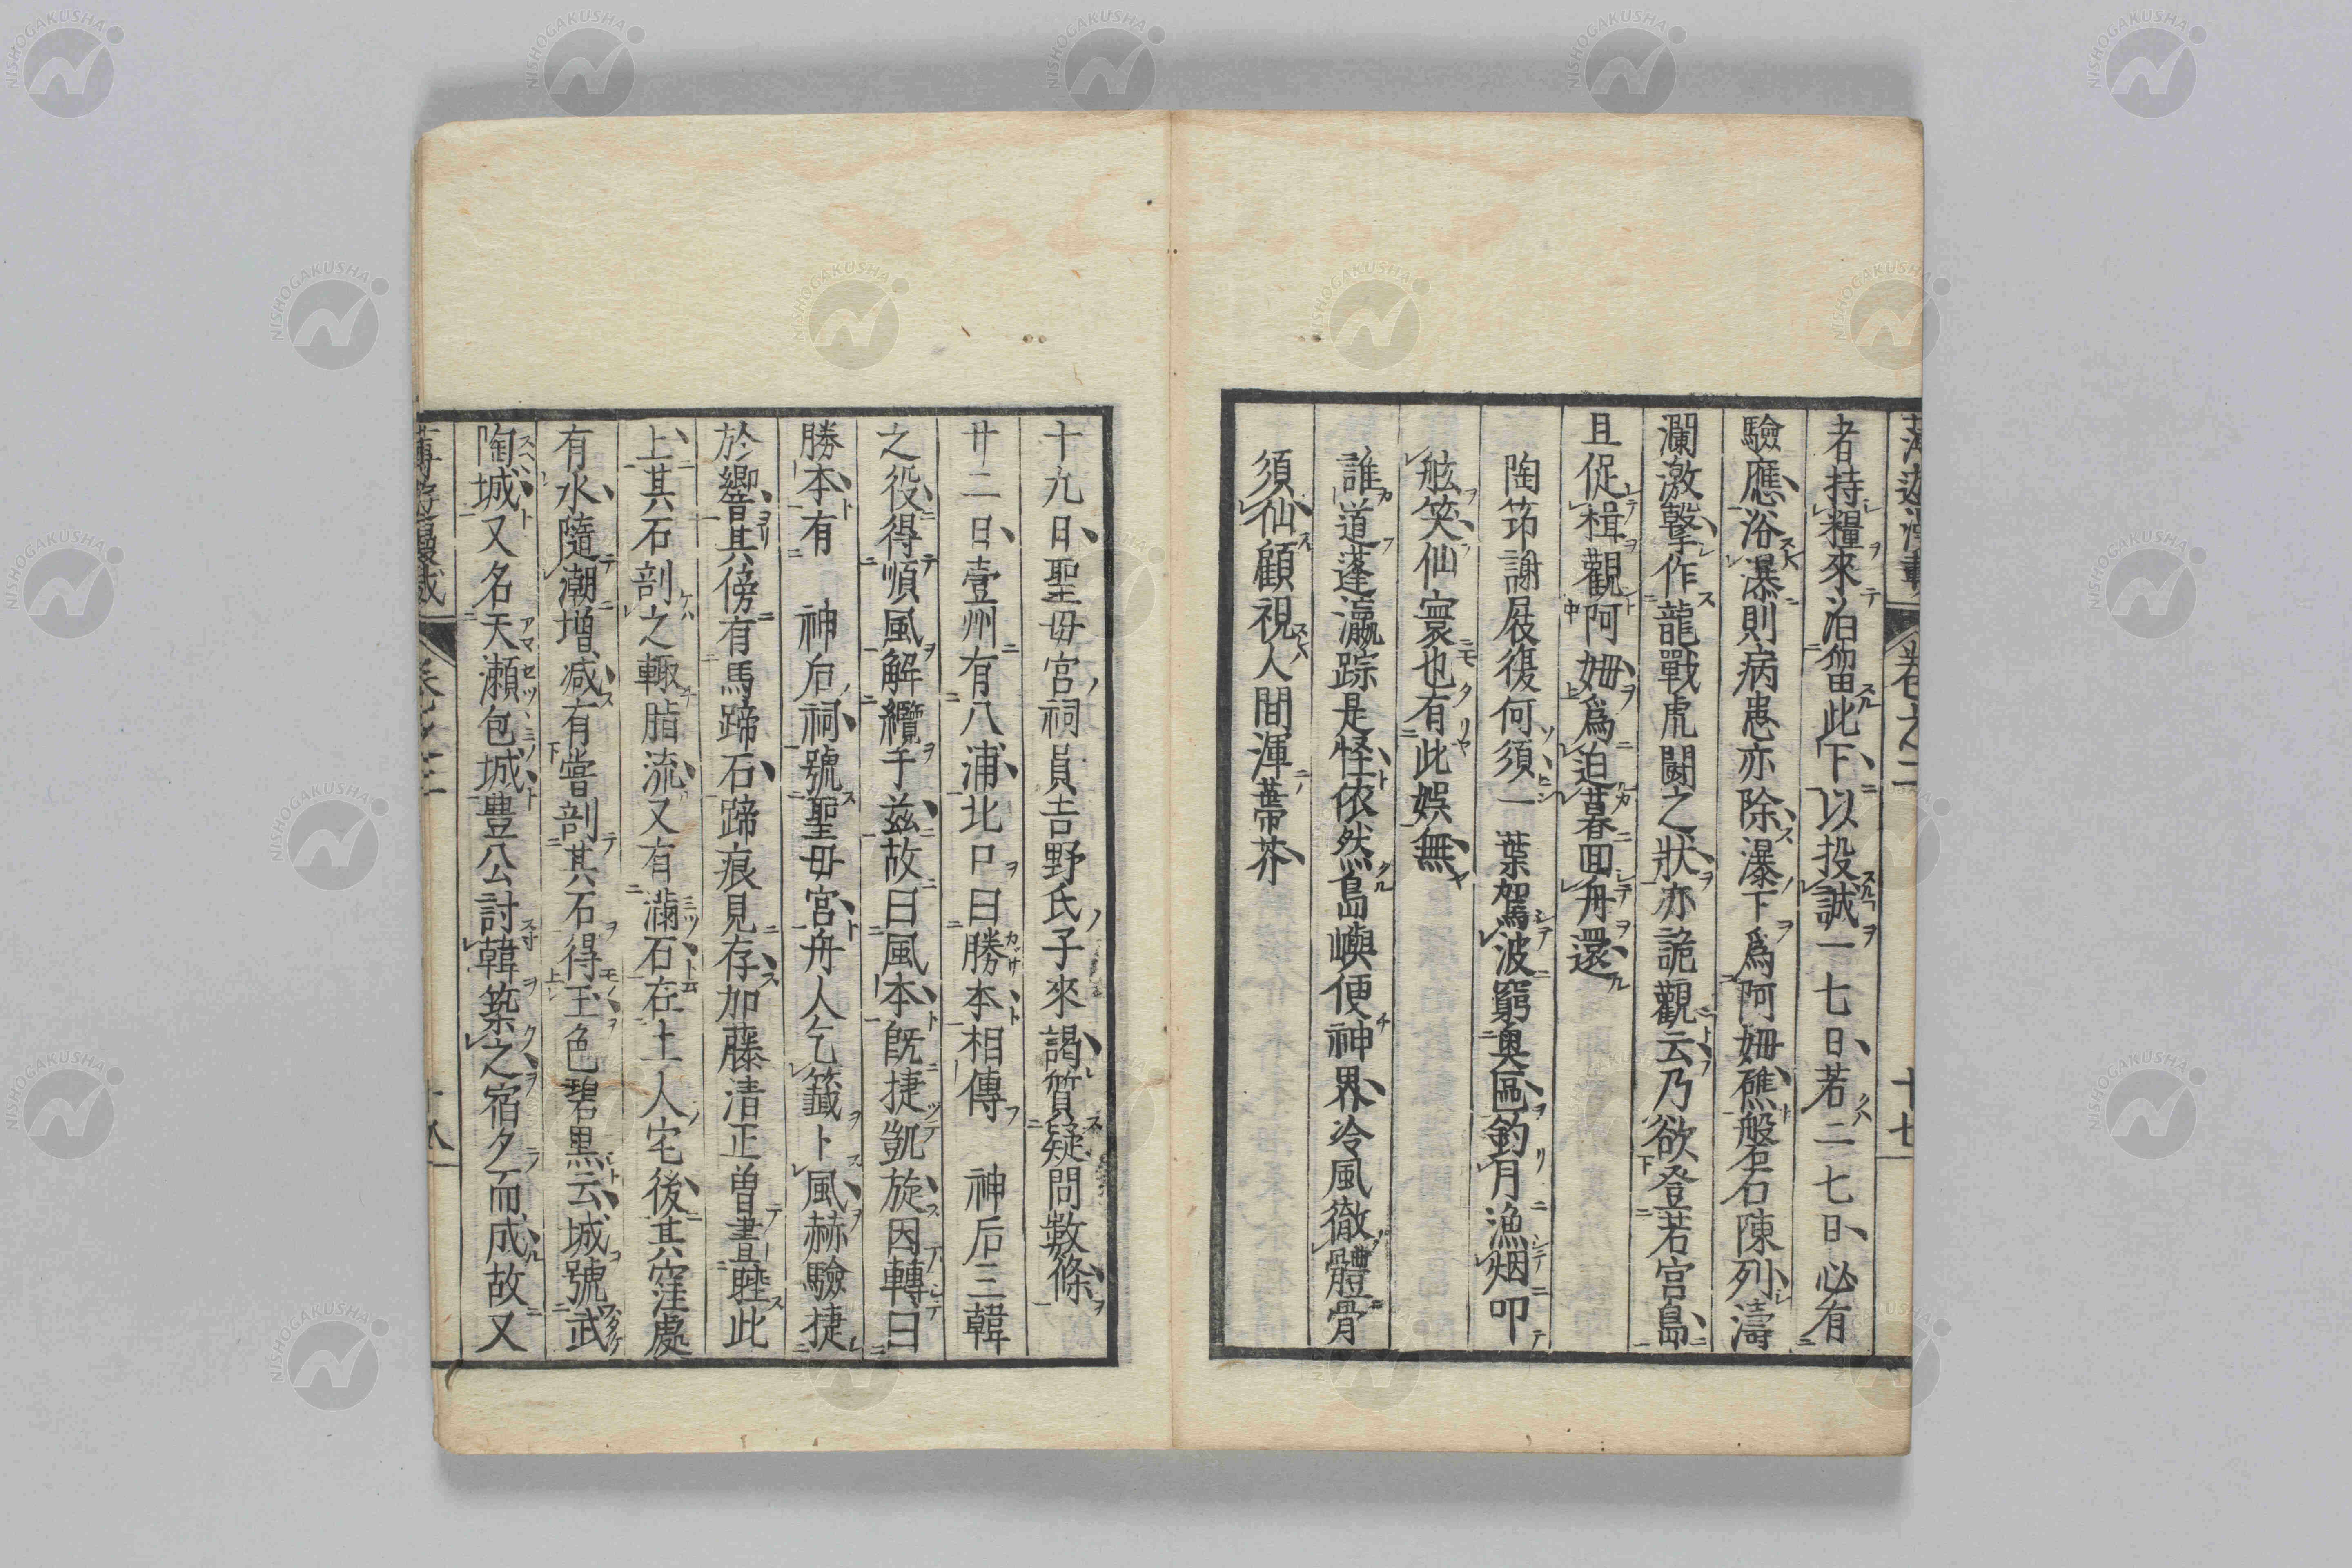 者持糧來泊留此下以投誠一七日若二七日必有
驗應浴瀑則病患亦除瀑下爲阿姆礁盤石陳列濤
瀾激擊作龍戰虎鬪之狀亦詭觀云乃欲登若宮島
且促楫觀阿姆爲迫暮回舟還
陶筇謝屐復何須一葉駕波窮奧區釣月漁烟叩
舷笑仙寰也有此娛無
誰道蓬瀛踪是怪依然島嶼便神界冷風徹體骨
須仙顧視人間渾蔕芥
十九日聖毋宮祠員吉野氏子來謁質疑問數條
廿二日壹州有八浦北口曰勝本相傳　神后三韓
之役得順風解纜于兹故曰風本既捷凱旋因轉曰
勝本有　神后祠號聖毋宮舟人乞籤卜風赫驗捷
於響其傍有馬蹄石蹄痕見存加藤清正曽晝睡此
上其石剖之輙脂流又有滿石在土人宅後其窪處
有水隨潮增减有嘗剖其石得玉色碧黒云城號武
陶城又名天瀬包城豊公討韓築之宿夕而成故又
卷之二
十七
NISHOGAKUSHA